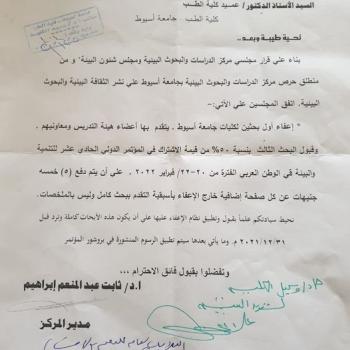 السيد الأستاذ الدكتور/ عميد كلية الطب
كلية الطب - جامعة أسيوط
تحية طيبة وبعد...
بناء علي قرار مجلسي مركز الدراسات والبحوث البيئية ومجلس شئون البيئة" من
منطلق حرص مركز الدراسات والبحوث البيئية بجامعة أسيوط علي نشر الثقافة البيئية والبحوث
البيئية. اتفق المجلسين علي الآتي:-
• إعفاء أول بحثين لكليات جامعة أسيوط . يتقدم بها أعضاء هيئة التدريس ومعاونيهم .
وقبول البحث الثالث بنسبة ٥٠% من قيمة الاشتراك في المؤتمر الدولي الحادي عشر للتنمية
والبيئة في الوطن العربي الفترة من ٢٠-٢٢/ فبراير ٢٠٢٢ . علي أن يتم دفع (٥) خمسه
جنيهات عن كل صفحة إضافية خارج الإعفاء بأسبقية التقدم ببحث كامل وليس بالملخصات.
نحيط سيادتكم علماً بقبول وتطبيق نظام الإعفاء عليها علي أن يكون هذه الأبحاث كاملة وترد قبل
٢٠٢١/١٢/٣١ م. وما يأتي بعدها سيتم تطبيق الرسوم المنشورة في بروشور المؤتمر
وتفضلوا بقبول فائق الاحترام ...
ا.د/ ثابت عبد المنعم إبراهيم
مدير المركز